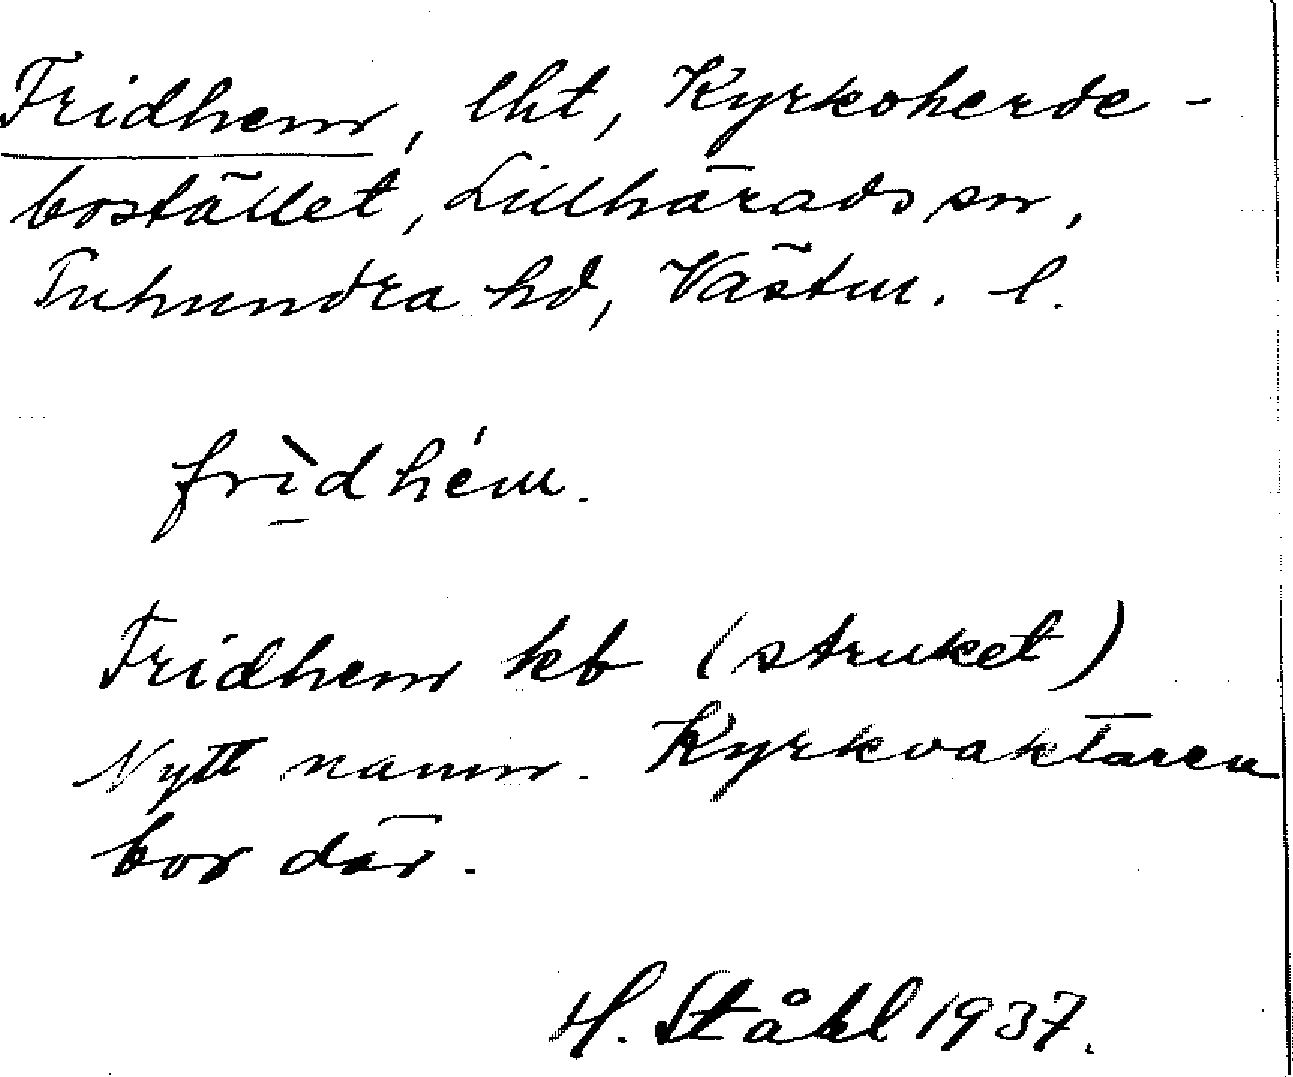 Fridhem, lht, Kyrkoherde-
bostället, Lillhärads sn,
Tuhundra hd, Västm. l.
frìdhém.
Fridhem kb (struket)
Nytt namn. Kyrkvaktaren
bor där.
H. Ståhl 1937.